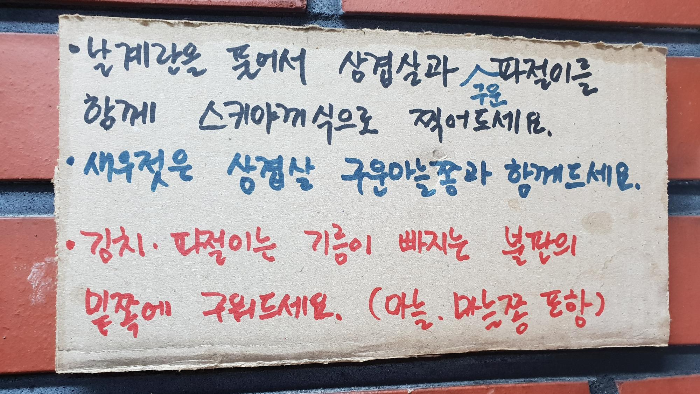 · 날계란을 풎어서 상겹살과 구운 파절이를
함께 스키야끼식으로 찍어드세요.
· 새우젓은 삼겹살 구운마늘쫑과 함께드세요.
· 김치· 파절이는 기름이 빠지는 불판의
밑쪽에 구워드세요. (마늘. 마늘쫑 포함)